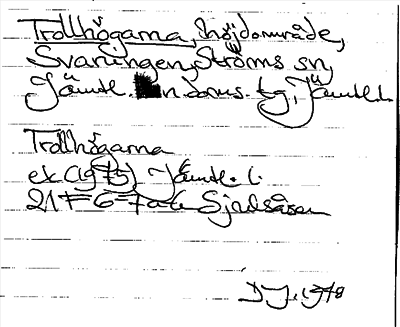 Trollhögarna, höjdområde,
Svaningen, Ströms sn,
Jämtl. n. doms. tg, Jämtl. l.
Trollhögarna
ek (1975) Jämtl. l.
21F 6-7 a-b Sjoutsåsen
D J. 1978